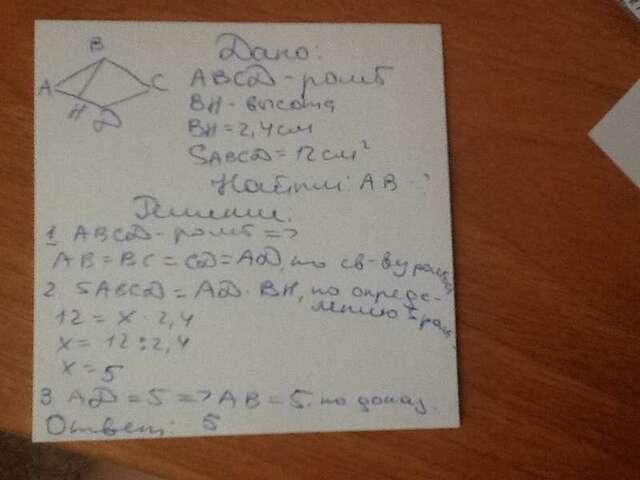 Дано:
B
ABCD - ромб
A
C
BH - высота
H
D
BH = 2,4 см
SABCD = 12 см²
Найти: AB - ?
Решение:
1. ABCD - ромб =>
AB = BC = CD = AD, по св-ву ромба
2. SABCD = AD · BH, по опреде-
лению S ром.
12 = x · 2,4
x = 12 : 2,4
x = 5
3. AD = 5 => AB = 5. по доказ.
Ответ: 5